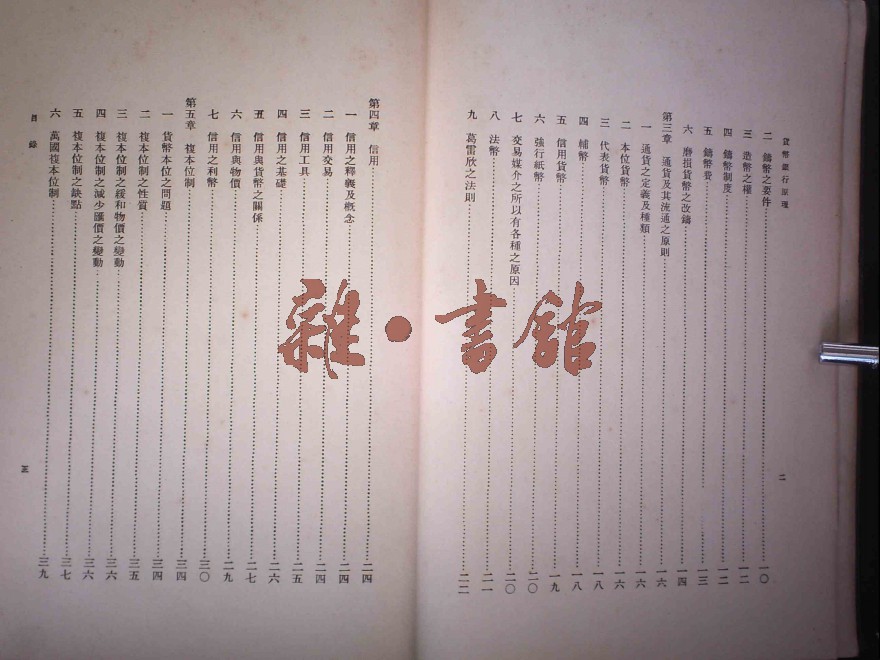 貨幣銀行原理
二 鑄幣之要件 一〇
三 造幣之權 一二
四 鑄幣制度 一二
五 鑄幣費 一三
六 磨損貨幣之改鑄 一四
第三章 通貨及其流通之原則 一六
一 通貨之定義及種類 一六
二 本位貨幣 一六
三 代表貨幣 一八
四 輔幣 一八
五 信用貨幣 一九
六 強行紙幣 二〇
七 交易媒介之所以有各種之原因 二〇
八 法幣 二一
九 葛雷欣之法則 二二
二
第四章 信用 二四
一 信用之釋義及概念 二四
二 信用交易 二四
三 信用工具 二五
四 信用之基礎 二六
五 信用與貨幣之關係 二七
六 信用與物價 二九
七 信用之利弊 三〇
第五章 複本位制 三四
一 貨幣本位之問題 三四
二 複本位制之性質 三五
三 複本位制之緩和物價之變動 三六
四 複本位制之減少匯價之變動 三六
五 複本位制之缺點 三七
六 萬國複本位制 三九
目錄
雜·書館